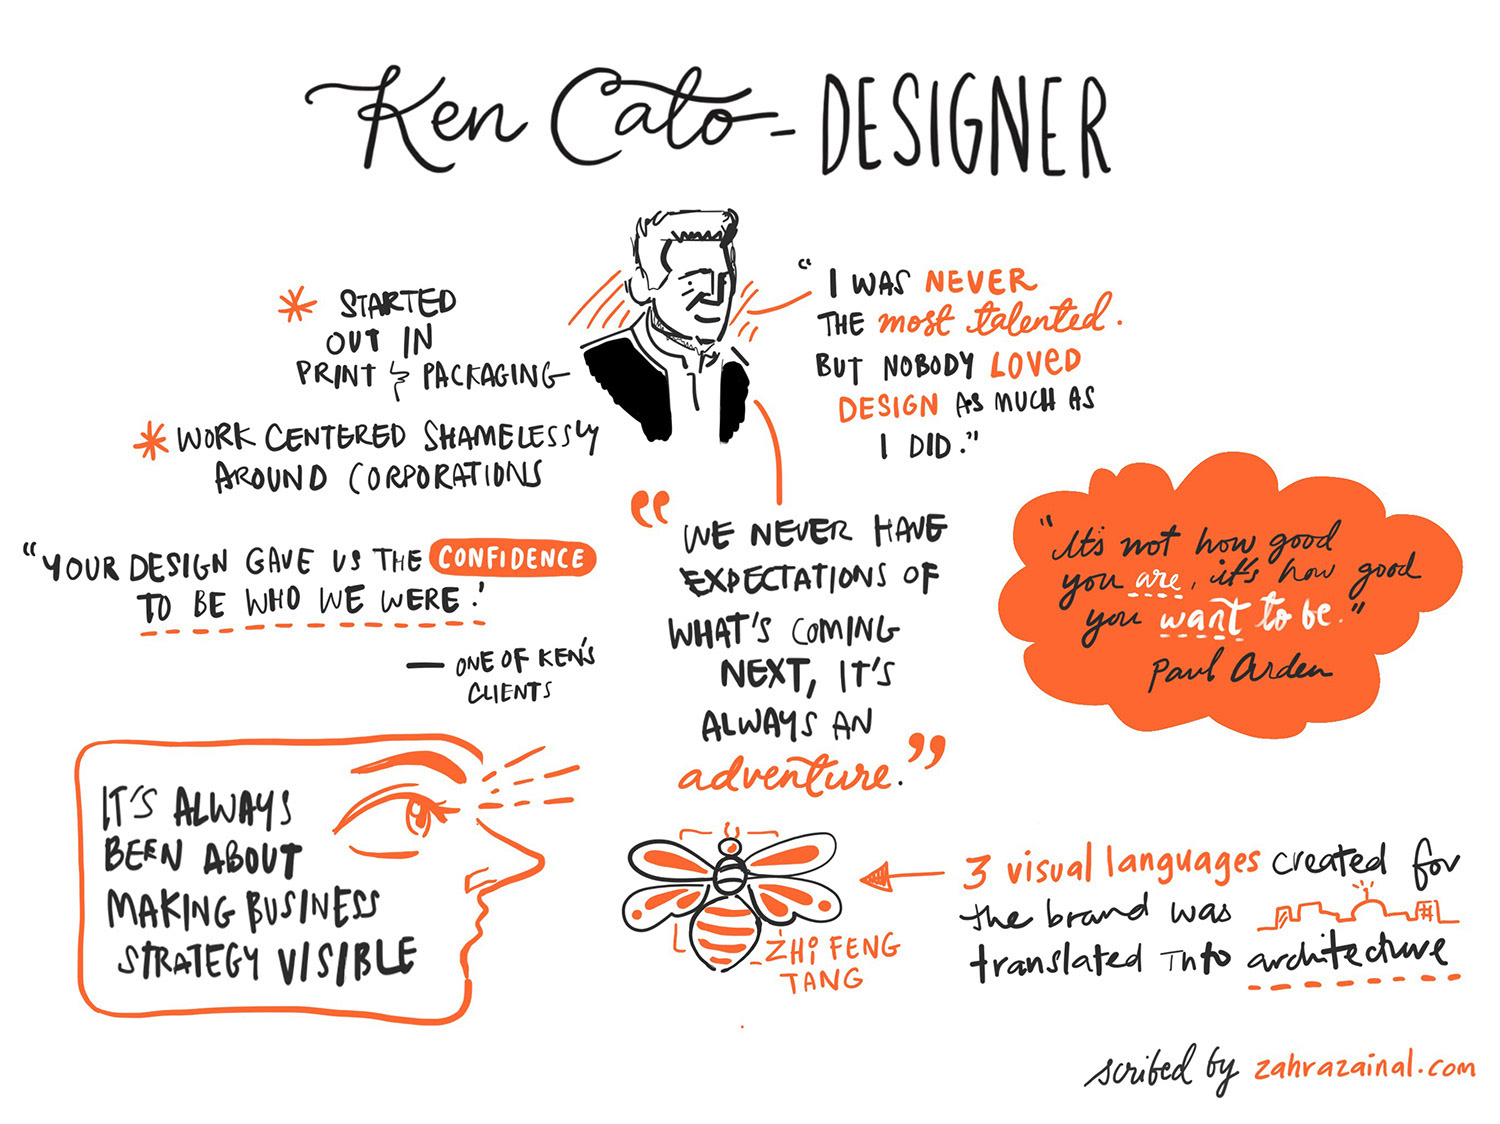 Ken Cato - DESIGNER
* STARTED
OUT IN
PRINT & PACKAGING
* WORK CENTERED SHAMELESSLY
AROUND CORPORATIONS
"YOUR DESIGN GAVE US THE CONFIDENCE
TO BE WHO WE WERE."
— ONE OF KEN'S
CLIENTS
"I WAS NEVER
THE most talented.
BUT NOBODY LOVED
DESIGN AS MUCH AS
I DID."
"WE NEVER HAVE
EXPECTATIONS OF
WHAT'S COMING
NEXT, IT'S
ALWAYS AN
adventure."
"It's not how good
you are, it's how good
you want to be."
Paul Arden
IT'S ALWAYS
BEEN ABOUT
MAKING BUSINESS
STRATEGY VISIBLE
ZHI FENG
TANG
3 visual languages created for
the brand was
translated into architecture
scribed by zahrazainal.com